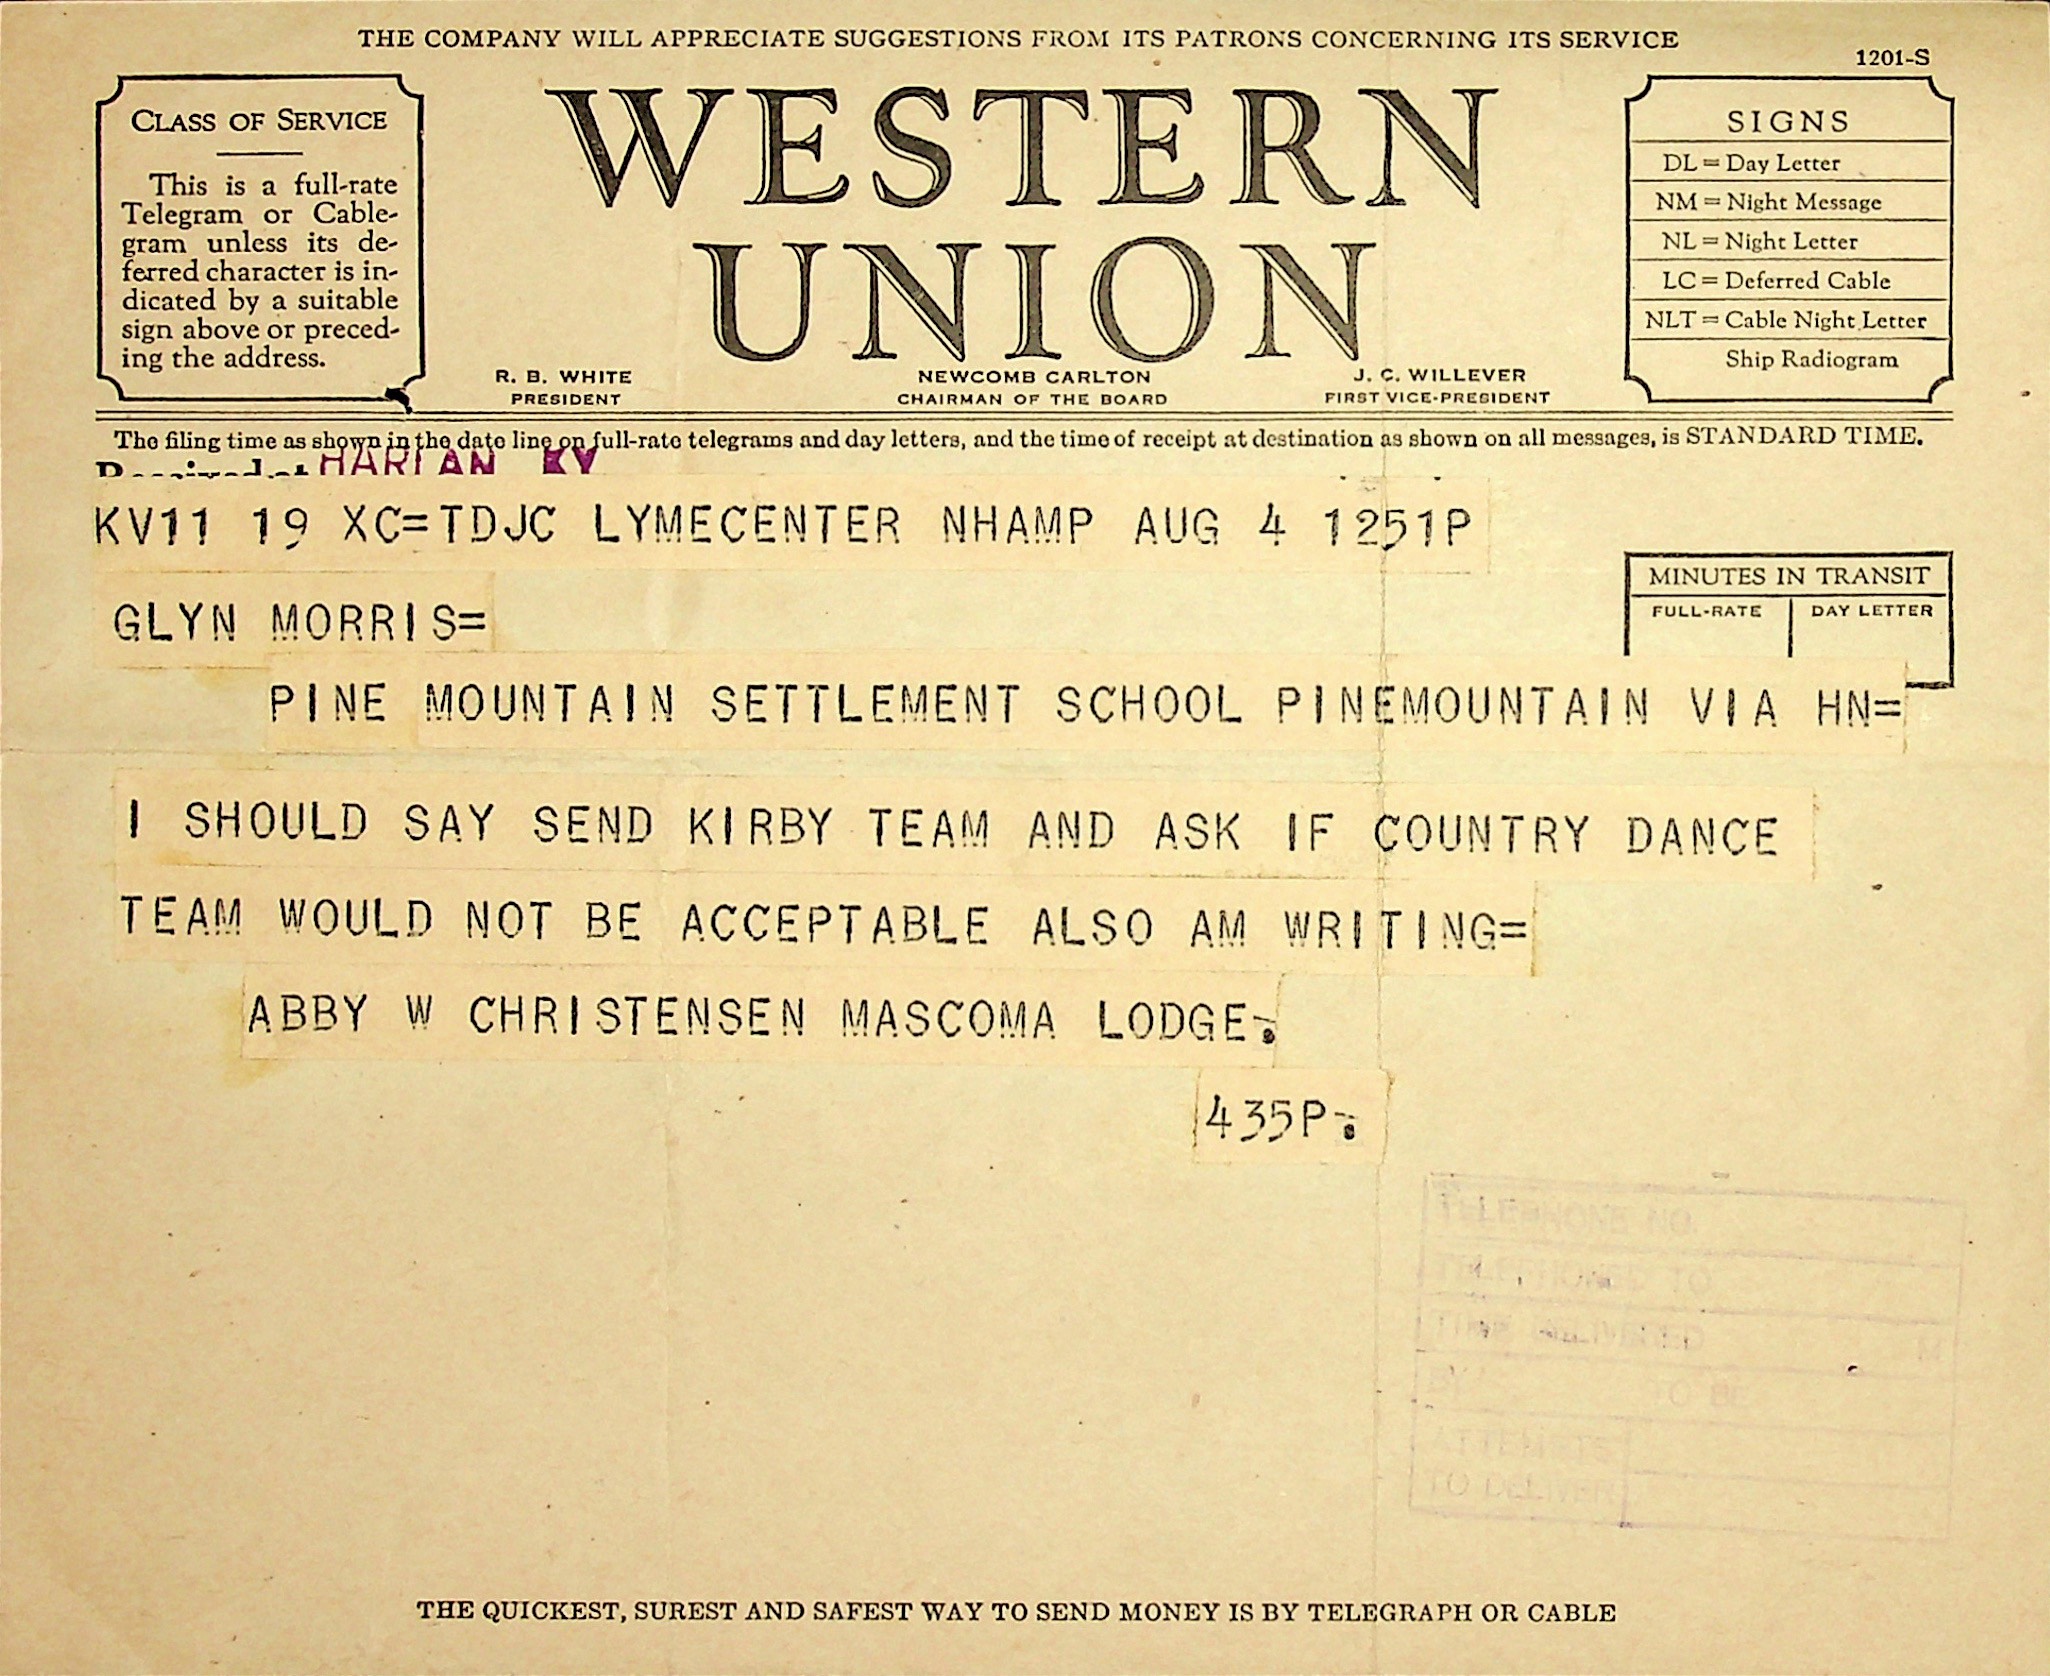 THE COMPANY WILL APPRECIATE SUGGESTIONS FROM ITS PATRONS CONCERNING ITS SERVICE
1201-S
CLASS OF SERVICE
This is a full-rate
Telegram or Cable-
gram unless its de-
ferred character is in-
dicated by a suitable
sign above or preced-
ing the address.
WESTERN
UNION
R. B. WHITE
PRESIDENT
NEWCOMB CARLTON
CHAIRMAN OF THE BOARD
J. C. WILLEVER
FIRST VICE-PRESIDENT
SIGNS
DL = Day Letter
NM = Night Message
NL = Night Letter
LC = Deferred Cable
NLT = Cable Night Letter
Ship Radiogram
The filing time as shown in the date line on full-rate telegrams and day letters, and the time of receipt at destination as shown on all messages, is STANDARD TIME.
Received at HARLAN KY
KV11 19 XC=TDJC LYMECENTER NHAMP AUG 4 1251P
MINUTES IN TRANSIT
FULL-RATE
DAY LETTER
GLYN MORRIS=
PINE MOUNTAIN SETTLEMENT SCHOOL PINEMOUNTAIN VIA HN=
I SHOULD SAY SEND KIRBY TEAM AND ASK IF COUNTRY DANCE
TEAM WOULD NOT BE ACCEPTABLE ALSO AM WRITING=
ABBY W CHRISTENSEN MASCOMA LODGE.
435P.
TELEPHONE NO.
TELEPHONED TO
TIME DELIVERED M
BY TO BE
ATTEMPTS
TO DELIVER
THE QUICKEST, SUREST AND SAFEST WAY TO SEND MONEY IS BY TELEGRAPH OR CABLE